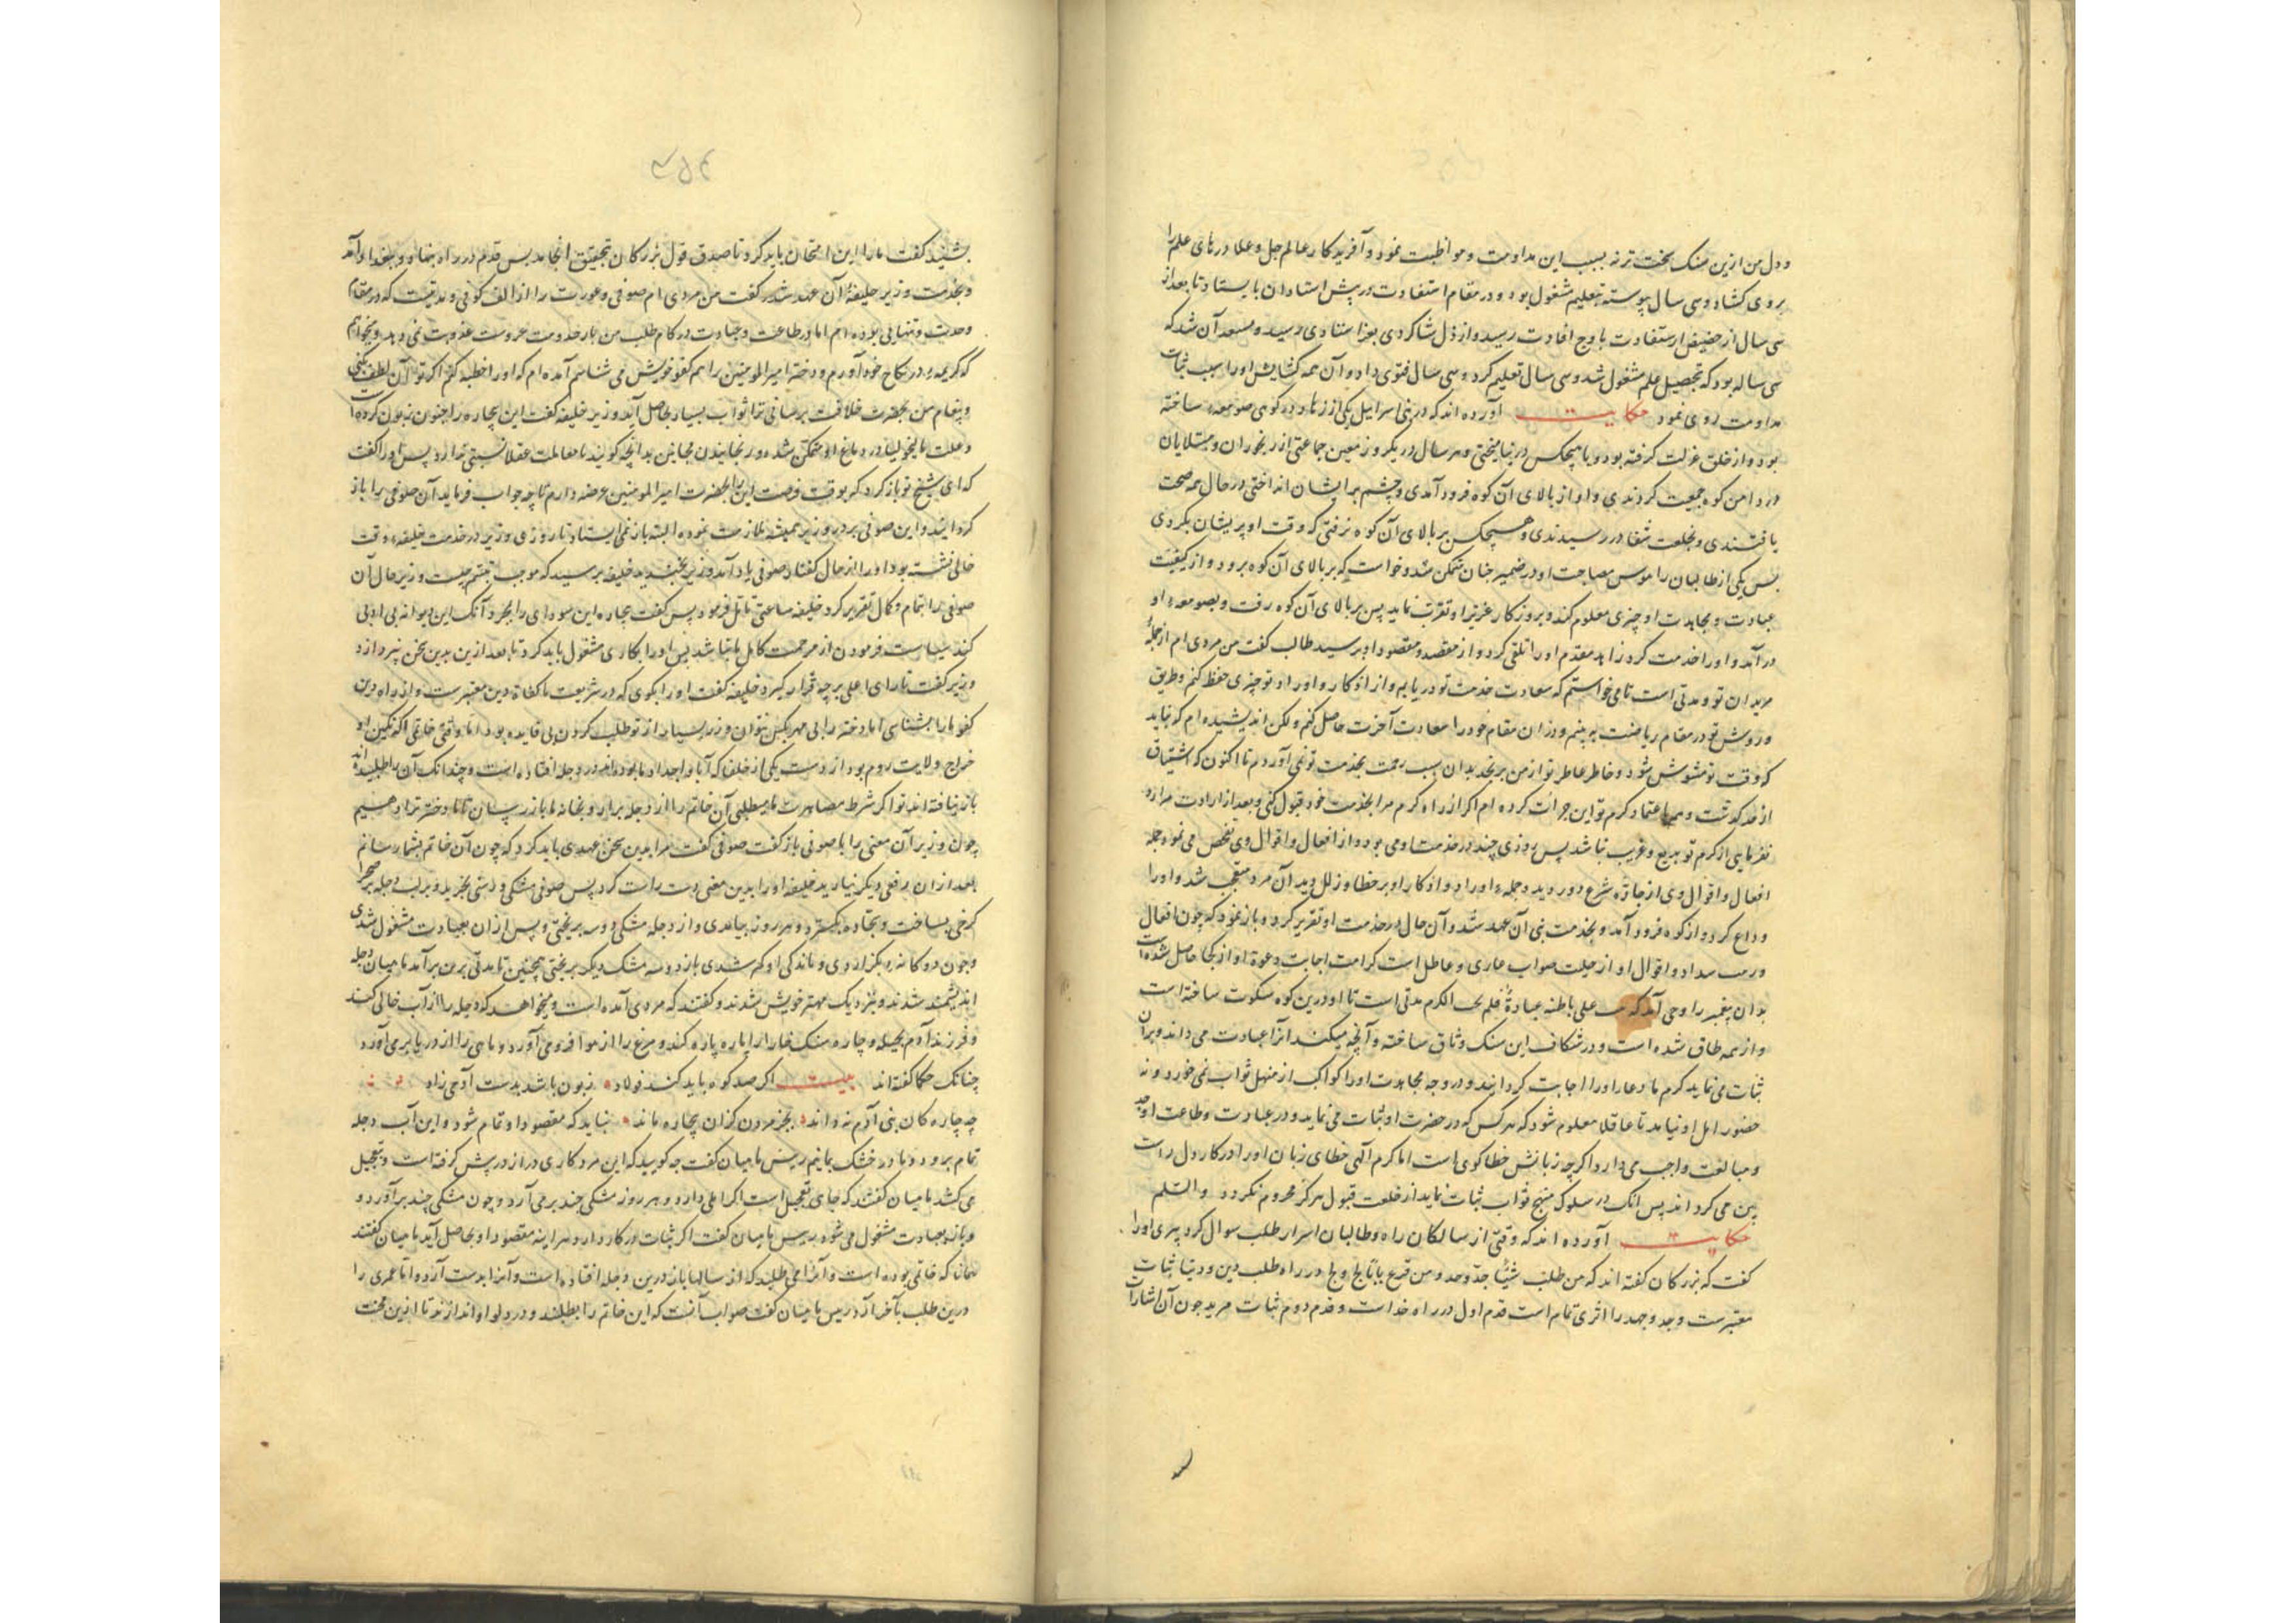 و دل من ازین سنک سخت‌تر نه بسبب این مداومت و مواظبت نمود و آفریدکار عالم جل و علا درهای علم را
بروی کشاد و سی سال پیوسته بتعلیم مشغول بود و در مقام استفادت در پیش استادان بایستاد تا بعد از
سی سال از حضیض استفادت باوج افادت رسید و از ذل شاکردی بعز استادی رسید و بعد آن شد که
سی ساله بود که بتحصیل علم مشغول شد و سی سال تعلیم کرد و سی سال فتوی داد و آن همه کشایش او را بسبب ثبات
مداومت روی نمود حکایت آورده‌اند که در بنی اسرائیل یکی از زهاد در کوهی صومعه ساخته
بود و از خلق عزلت کرفته بود و با هیچکس در نیامیختی و هر سال در یکروز معین جماعتی از رنجوران و مبتلایان
در دامن کوه جمعیت کردندی و او از بالای آن کوه فرود آمدی و چشم بر ایشان انداختی در حال همه صحت
یافتندی و بخلعت شفا در رسیدندی و هیچکس بر بالای آن کوه نرفتی که وقت او پریشان بکردی
پس یکی از طالبان را هوس مصاحبت او در ضمیر چنان متمکن شد و خواست که بر بالای آن کوه برود و از کیفیت
عبادت و مجاهدت او چیزی معلوم کند و بروزکار عزیز او تقرب نماید پس بر بالای آن کوه رفت و بصومعه او
در آمد و او را خدمت کرد زاهد مقدم او را تلقی کرد و از مقصد و مقصود او پرسید طالب کفت من مردی‌ام از جمله
مریدان تو و مدتی است تا می‌خواستم که سعادت خدمت تو دریابم و از اذکار و اوراد تو چیزی حفظ کنم و طریق
و روش تو در مقام ریاضت به بینم و زان مقام خود را سعادت آخرت حاصل کنم ولکن اندیشیده‌ام که نباید
که وقت تو مشوش شود و خاطر عاطر تو از من برنجد بدان سبب زحمت بخدمت تو نمی‌آوردم تا اکنون که اشتیاق
از حد کذشت و هم باعتماد کرم تو این جرأت کرده‌ام اکر از راه کرم مرا بخدمت خود قبول کنی و بعد از ارادت مرا رد
نفرمایی از کرم تو بدیع و غریب نباشد پس روزی چند در خدمت او می‌بود و از افعال و اقوال وی تفحص می‌نمود جمله
افعال و اقوال وی از جاده شرع دور دید و جمله اوراد و اذکار او بر خطا و زلل دید آن مرد متعجب شد و او را
وداع کرد و از کوه فرود آمد و بخدمت نبی آن عهد شد و آن حال در خدمت او تقریر کرد و باز نمود که چون افعال
سداد و اقوال او از حیلت صواب عاری و عاطل است کرامت اجابت دعوة او از کجا حاصل شده است
بدان پیغمبر را وحی آمد که علی باطنه عبادة الکرم مدتی است تا او درین کوه سکونت ساخته است
و از همه طاق شده است و در شکاف این سنک وثاق ساخته و آنچه میکند آنرا عبادت می‌داند و بر آن
ثبات می‌نماید کرم ما دعا او را اجابت کردانید و در وجه مجاهدت او را کواکب از منهل ثواب نمی‌خورد و نه
حضور اهل او نیامد تا عاقلا معلوم شود که هر کس که در حضرت او ثبات می‌نماید و در عبادت و طاعت او جد
و مبالغت واجب می‌دارد اکرچه زبانش خطا کوی است اما کرم آلهی خطای زبان او را در کار دل راست
بین می‌کرداند پس آنک در سلوک منهج ثواب ثبات نماید از خلعت قبول هرکز محروم نکردد والسلم
حکایت آورده‌اند که وقتی از سالکان راه و طالبان اسرار طلب سوال کرد پیری او را
کفت که بزرکان کفته‌اند که من طلب شیئا جد وجد و من قرع بابا و لج ولج در راه طلب دین و دنیا ثبات
معتبرست و جد و جهد را اثری تمام است قدم اول در راه خداست و قدم دوم ثبات مرید چون آن اشارات
۴۵۴
بشنید کفت ما را این امتحان باید کرد تا صدق قول بزرکان بتحقیق انجامد پس قدم در راه نهاد و ببغداد آمد
و بخدمت وزیر خلیفه آن عهد شد کفت من مردی‌ام صوفی و مدتیست که در مقام
وحدت و تنهایی بوده‌ام اما در طاعت و عبادت در کام طلب من عذوبت نمی‌دهد و میخواهم
که کریمه در نکاح خود آورم و دختر امیر المومنین را هم کفو خویش می‌شناسم آمده‌ام که او را خطبه کنم اکر تو آن لطف بکنی
و پیغام من بحضرت خلافت برسانی ترا ثواب بسیار بحاصل آید وزیر خلیفه کفت این بیچاره را جنون زبون کرده است
و علت مالیخولیا در دماغ او متمکن شده و رنجانیدن مجانین بدانچه کویند با معاملت عقلا نسبتی ندارد پس او را کفت
که ای شیخ تو باز کرد که بوقت فرصت این را بحضرت امیر المومنین عرضه دارم تا چه جواب فرماید آن صوفی را باز
کردانید و این صوفی بر در وزیر همیشه ملازمت نموده البته باز نمی‌ایستاد تا روزی وزیر در خدمت خلیفه وقت
خالی نشسته بود او را از حال کفتار صوفی یاد آمد وزیر بخندید خلیفه پرسید که موجب تبسم چیست وزیر حال آن
صوفی را بتمام و کمال تقریر کرد خلیفه ساعتی تأمل فرمود پس کفت بیچاره این سودای را بمجرد آنک این دیوانه بی ادبی
کند سیاست فرمودن از مرحمت کامل ما نباشد پس او را بکاری مشغول باید کرد تا بعد ازین بدین سخن نپردازد
وزیر کفت تا رای اعلی بر چه قرار کیرد خلیفه کفت او را بکوی که در شریعت ما کفاءة دین معتبرست و از راه دین
کفو ما را بشناسی اما دختر را بی مهر بکس نتوان و زر بسیار از تو طلب کردن بی فایده بود اما وقتی خاتمی که نکین او
خراج ولایت روم بود از دست یکی از خلفا که آبا و اجداد ما بوده‌اند در دجله افتاده است و چندانک آن را طلبیده‌اند
باز نیافته‌اند تو اکر شرط مصاهرت ما میطلبی آن خاتم را از دجله برآر و بخانه ما باز رسان تا ما دختر ترا دهیم
چون وزیر آن معنی را با صوفی باز کفت صوفی کفت مرا بدین سخن عهدی باید کرد که چون آن خاتم بشما رسانم
بعد از آن رقعی دیکر نیارید خلیفه او را بدین معنی دست راست کرد پس صوفی مشکی و دستی بخرید و بر لب دجله بر صحرا
کرخی بساخت و سجاده بکسترد و هر روز بیامدی و از دجله مشکی دو سه بریختی و پس از آن بعبادت مشغول شدی
و چون دوکانه بکزاردی و ماندکی او کم شدی باز دو سه مشک دیکر بریختی همچنین تا مدتی برین برآمد تا میان دجله
اندیشمند شدند و بنزدیک مهتر خویش شدند و کفتند که مردی آمده است و میخواهد که دجله را از آب خالی کند
و فرزند آدم بحیله و چاره سنک خارا را پاره پاره کند و مرغ را از هوا فرو می‌آورد و ماهی را از دریا بر می‌آورد
چنانک حکما کفته‌اند بیت اکر صد کوه باید کند فولاد زبون باشد بدست آدمی زاد
چه چاره کان بنی آدم نداند بجز مردن کزان بیچاره ماند نباید که مقصود او تمام شود و این آب دجله
تمام برود و ما در خشک بمانیم رییس ماهیان کفت چه کویید که این مرد کاری دراز در پیش کرفته است و بتعجیل
می‌کشد ماهیان کفتند که جای تعجیل است اکر املی دارد و هر روز مشکی چند بر می‌آرد و چون مشکی چند برآورد و
و باز بعبادت مشغول می‌شود رییس ماهیان کفت اکر ثبات در کار دارد هر آینه مقصود او بحاصل آید ماهیان کفتند
همانا که خاتمی بوده است و آنرا می‌طلبد که از سالها باز درین دجله افتاده است و آنرا بدست آرد و اتا عمری را
درین طلب بآخر آرد رییس ماهیان کفت صواب آنست که این خاتم را بطلبند و در دلو او اندازند تا ازین محنت